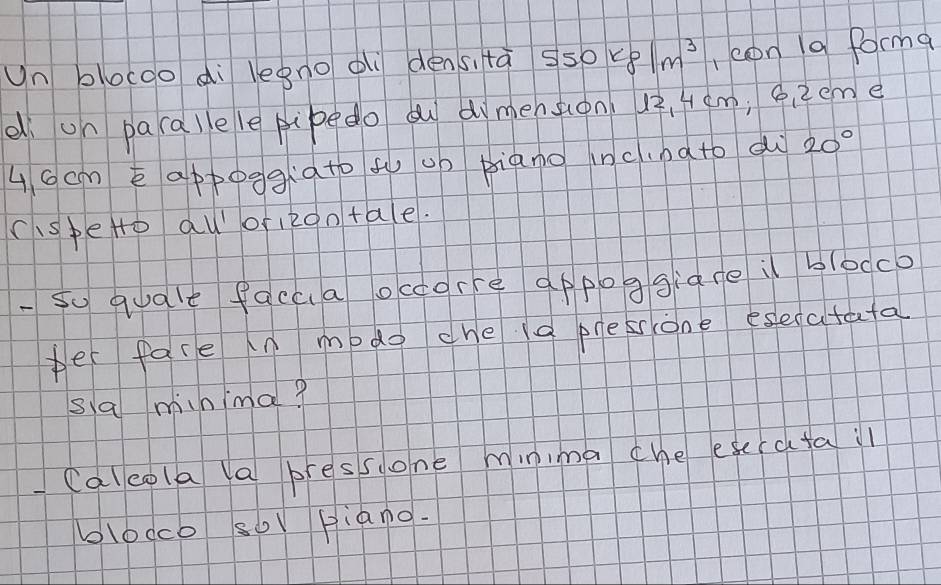 Un blocco di legno di densità 550 kg/m³, con la forma
di un parallelepipedo di dimensioni 12,4 cm; 6,2 cm e
4,6 cm è appoggiato su un piano inclinato di 20°
rispetto all'orizzontale.
- su quale faccia occorre appoggiare il blocco
per fare in modo che la pressione esercitata
sia minima?
- Calcola la pressione minima che esercita il
blocco sul piano.